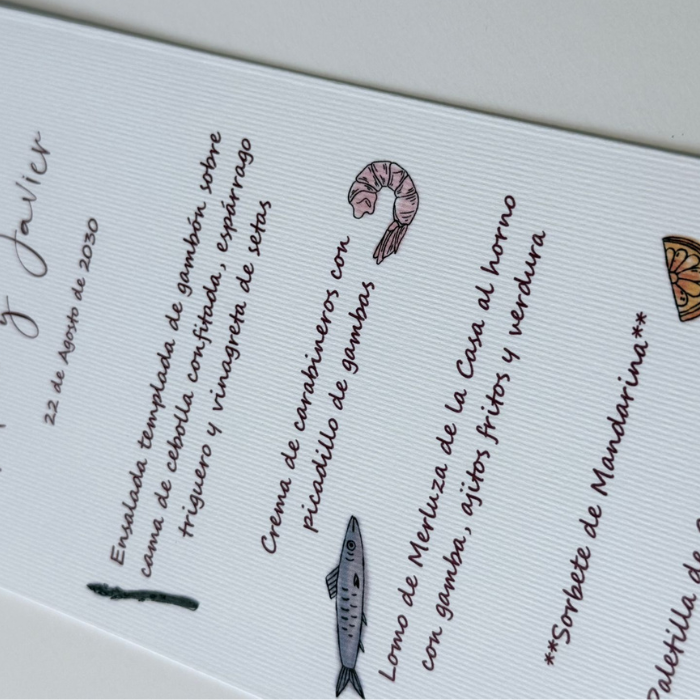 y Javier
22 de Agosto de 2030
Ensalada templada de gambón sobre
cama de cebolla confitada, espárrago
triguero y vinagreta de setas
Crema de carabineros con
picadillo de gambas
Lomo de Merluza de la Casa al horno
con gamba, ajitos fritos y verdura
**Sorbete de Mandarina**
Paletilla de